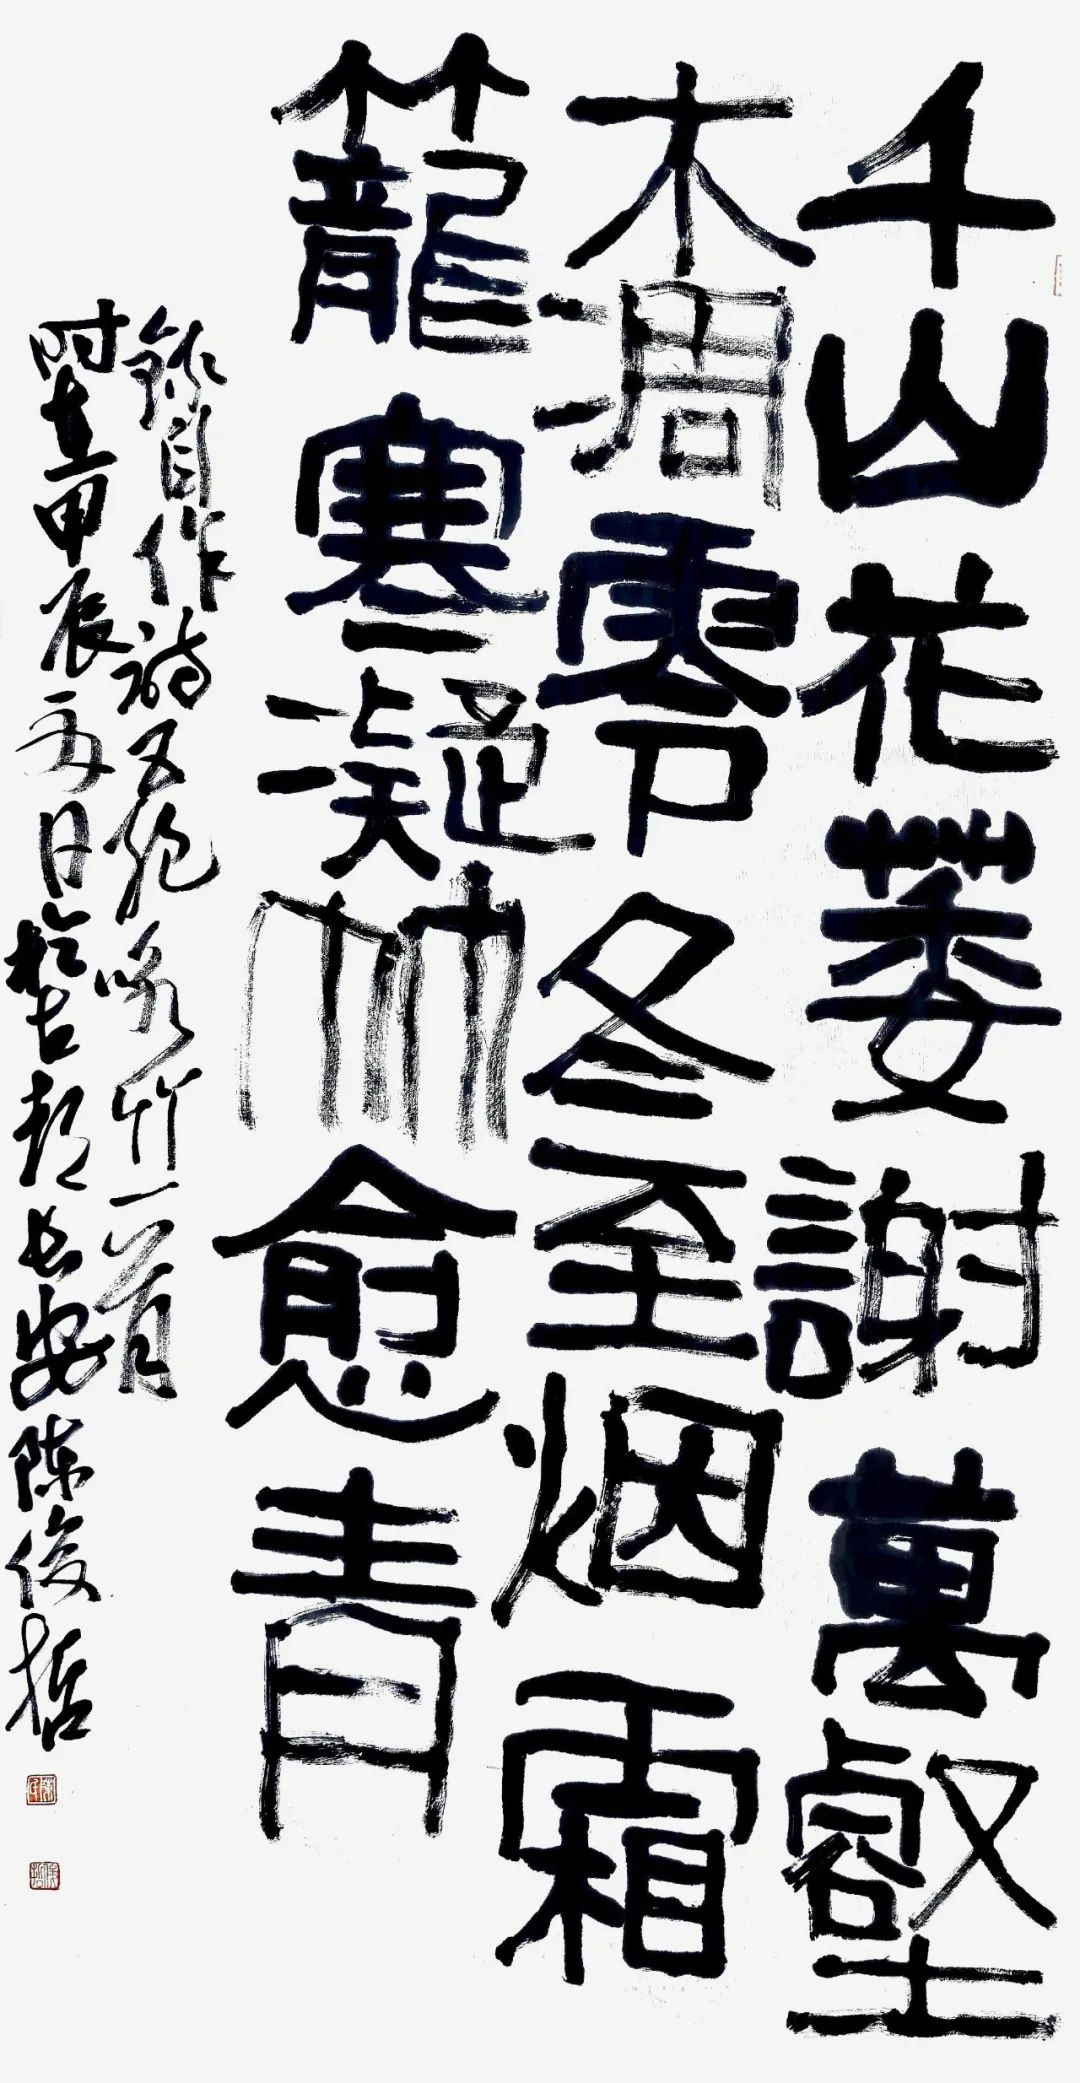 千山花萎謝萬壑
木凋零冬至烟霜
籠寒凝竹愈青
錄自作詩五絕咏竹一首
時在甲辰二月於古都長安陳俊哲